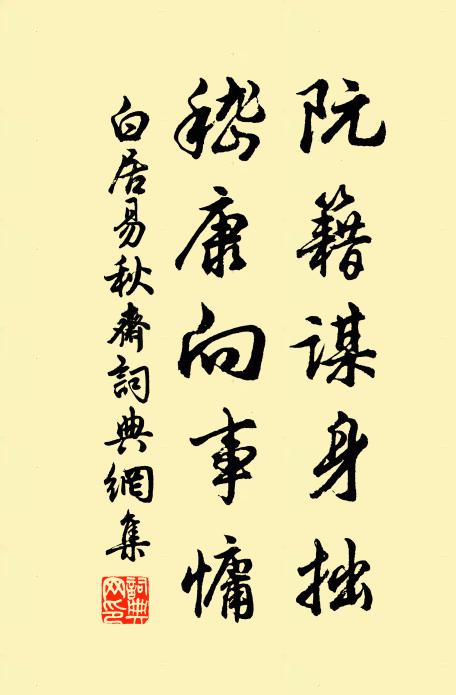 阮籍謀身拙
嵇康向事慵
白居易秋齋詞典網集
詞典網印